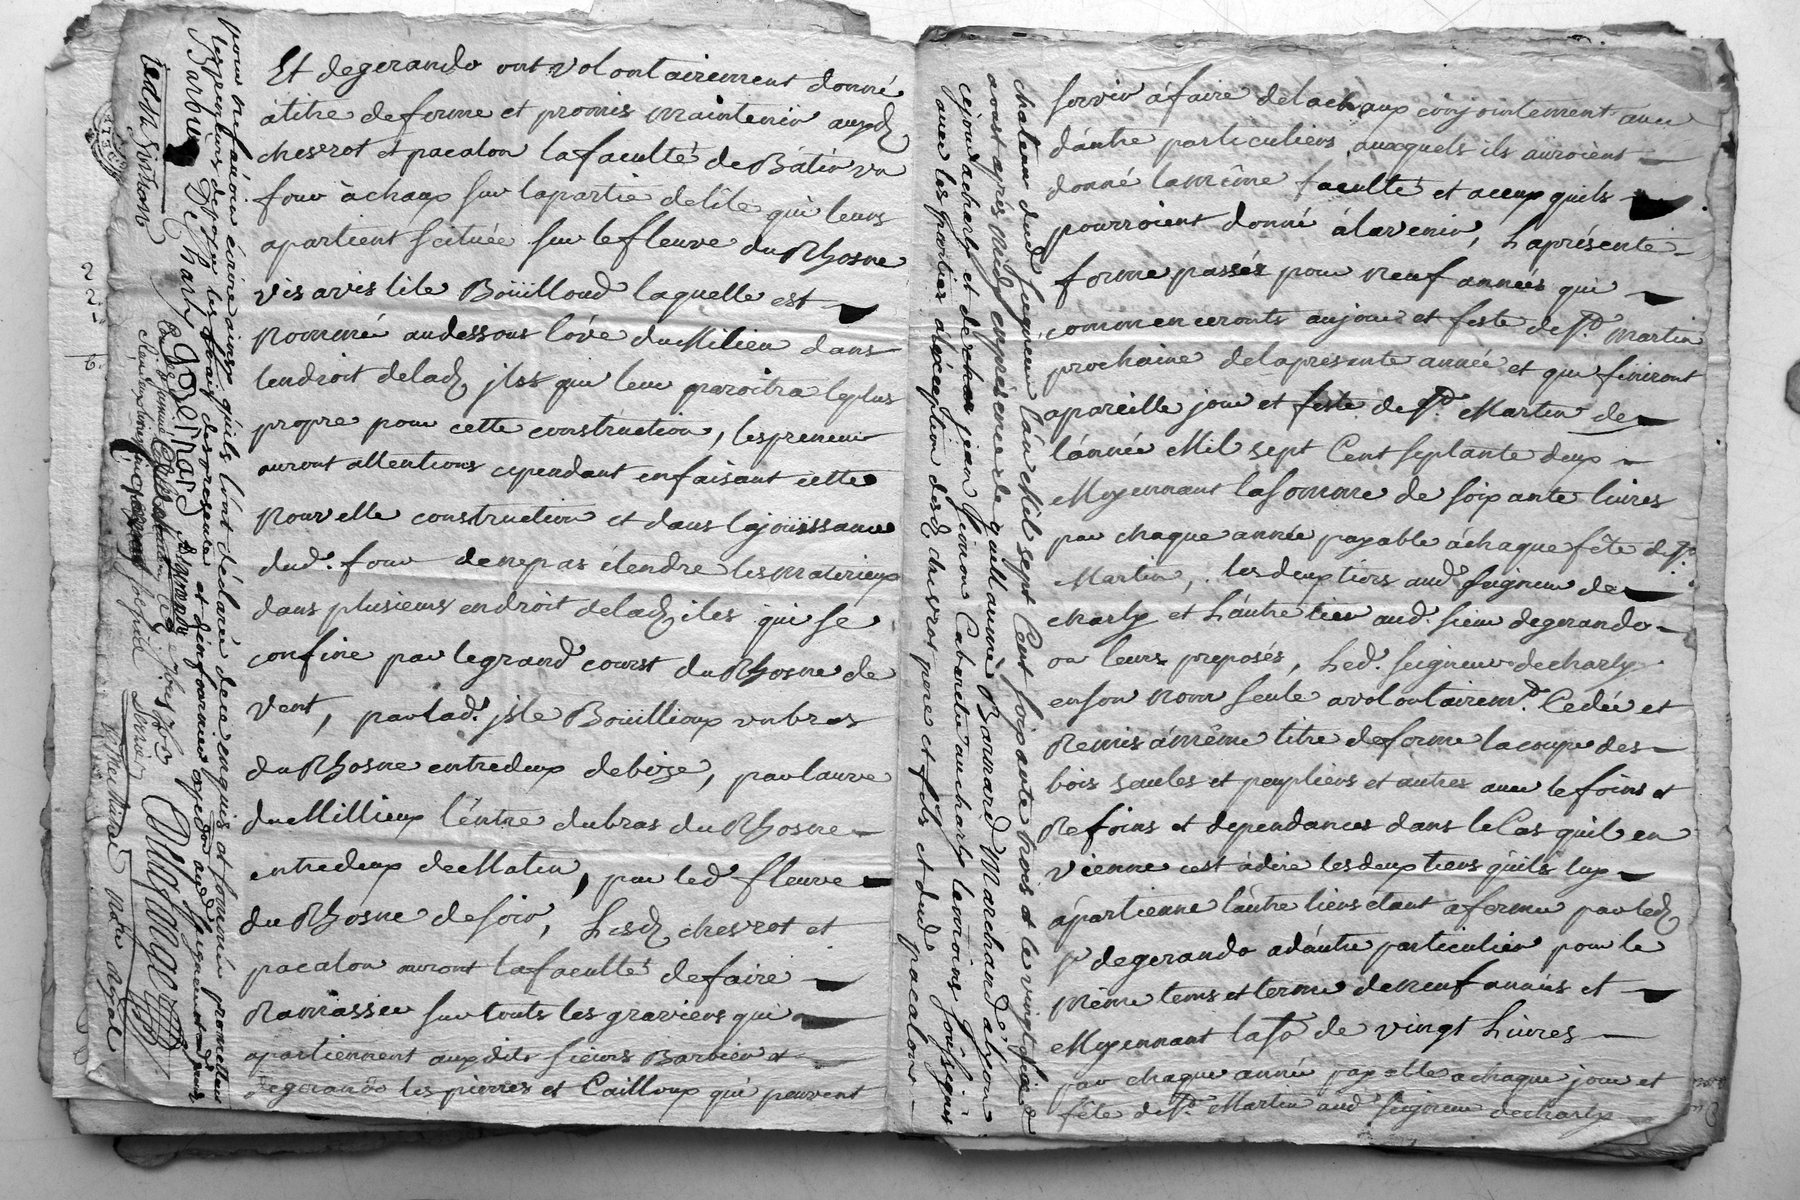 Et degerando ont volontairement donné
atitre deferme et promis maintenir auxd.
chevrot et pacalon lafaculté de Bâtir un
four àchaux sur lapartie delile qui leurs
apartient scituée sur lefleuve du Rhosne
visavis lile Boüilloud laquelle est
Nommé audessous lové du Milieu dans
lendroit delad. jles que leur paroitra leplus
propre pour cette construction, lespreneur
auront attentions cependant enfaisant cette
Nouvelle construction et dans lajoüissance
dud. four denepas étendre les materieux
dans plusieurs endroit delad. iles qui se
confine par legrand courst du Rhosne de
vent, parlad. jsle Boüillioux unbras
du Rhosne entredeux debize, par lauve
du Millieux l'entre dubras du Rhosne
entredeux de Matin, par led. fleuve
du Rhosne desoir, Lesd. chevrot et
pacalon auront lafaculté defaire
Ramasser sur touts les graviers qui
apartiennent auxdits sieurs Barbier et
Degerando les pierres et Cailloux qui peuvent
servir afaire delachaux conjointement avec
dautre particuliers auxquels ils auroient
donné lamême faculté et aceux quils
pourroient donné àlavenir, Laprésente
ferme passée pour neuf années qui
commenceronts aujour et feste de St. Martin
prochaine delapresente année et qui finiront
apareille jour et feste de St. Martin de
lannée Mil sept Cent septante deux
Moyennant lasomme de soixante livres
par chaque année payable àchaque fête de St.
Martin, les deux tiers aud. seigneur de
charly et Lautre tier aud. sieur degerando
ou leurs preposés, Led. seigneur decharly
enson nom seule avolontairemt. Cedée et
Remis amême titre deferme lacoupe des
bois saules et peupliers et autres avec lefoins et
Refoins et dependances dans le Cas quil en
vienne cest àdire lesdeux tiers quils luy
apartienne lautre tiers etant aferme par led.
sr. degerando adautre particulier pour le
même tems et terme de neuf années et
Moyennant laso. de vingt Livres
par chaque année payable achaque jour et
fête de St. Martin aud. seigneur decharly
chateau dud. seigneur l'an Mil sept Cent soixante trois et le vingt
aoust après midy enprésence de guillaume Barnard Marchand
cejour acharly et de jean Simon Cabaretier aucharly temoins soussignés
avec les parties alexception desd. chevrot pere et fils et dud. pacalon
pour ne savoir écrire ainsy quils l'ont déclaré dece enquis et sommés promettant
lespreneurs depayer les frais des presentes et d'enfournier expedon. aud. seigneur
Barbier De Charly Degerando
notre royal